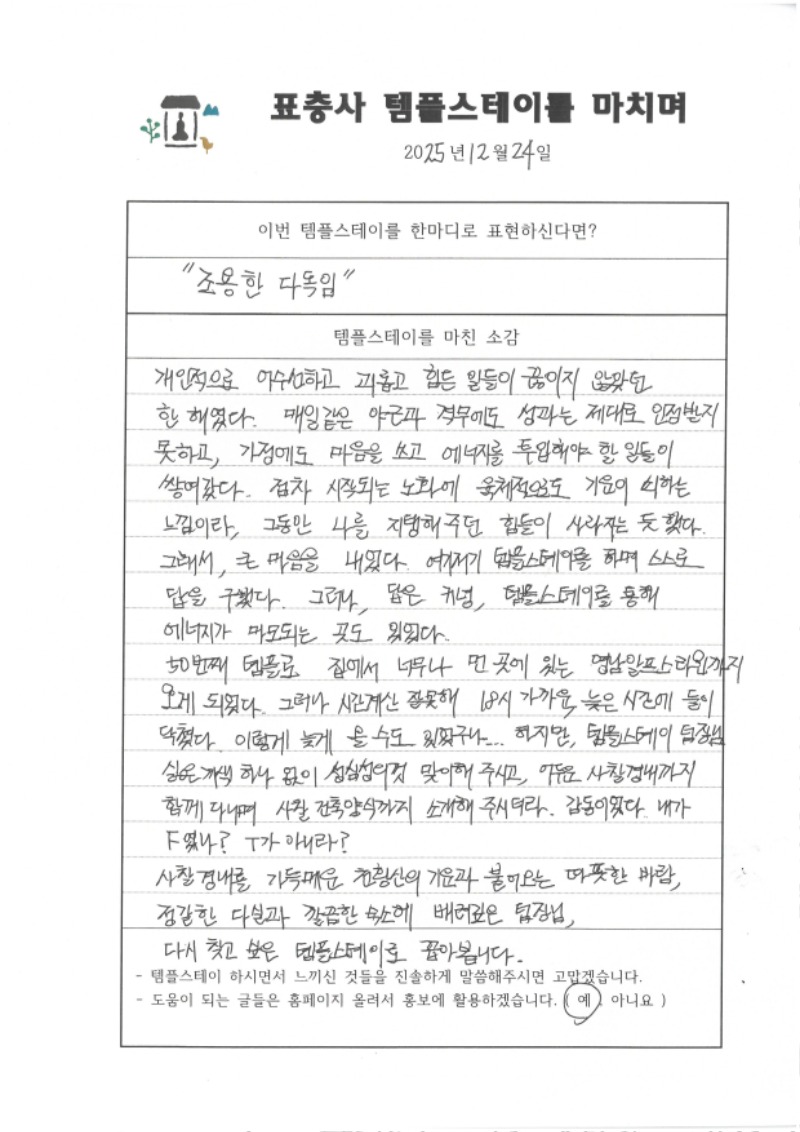 표충사 템플스테이를 마치며
2025년 12월 24일
이번 템플스테이를 한마디로 표현하신다면?
"조용한 다독임"
템플스테이를 마친 소감
개인적으로 어수선하고 괴롭고 힘든 일들이 끊이지 않았던
한 해였다. 매일같은 야근과 격무에도 성과는 제대로 인정받지
못하고, 가정에도 마음을 쓰고 에너지를 투입해야 할 일들이
쌓여갔다. 점차 시작되는 노화에 육체적으로도 기운이 쇠하는
느낌이라, 그동안 나를 지탱해주던 힘들이 사라지는 듯 했다.
그래서, 큰 마음을 내었다. 여기저기 템플스테이를 하며 스스로
답을 구했다. 그러나, 답은 커녕, 템플스테이를 통해
에너지가 마모되는 곳도 있었다.
50번째 템플로 집에서 너무나 먼 곳에 있는 영남알프스라인까지
오게 되었다. 그러나 시간계산 잘못해 18시 가까운, 늦은 시간에 들이
닥쳤다. 이렇게 늦게 올 수도 있었구나... 하지만, 템플스테이 팀장님
싫은 기색 하나 없이 성심성의껏 맞이해 주시고, 어두운 사찰경내까지
함께 다니며 사찰 건축양식까지 소개해 주시더라. 감동이었다. 내가
F였나? T가 아니라?
사찰경내를 가득메운 천황산의 기운과 불어오는 따뜻한 바람,
정갈한 다실과 깔끔한 숙소에 배려깊은 팀장님,
다시 찾고 싶은 템플스테이로 꼽아봅니다.
- 템플스테이 하시면서 느끼신 것들을 진솔하게 말씀해주시면 고맙겠습니다.
- 도움이 되는 글들은 홈페이지 올려서 홍보에 활용하겠습니다. ( 예 , 아니요 )